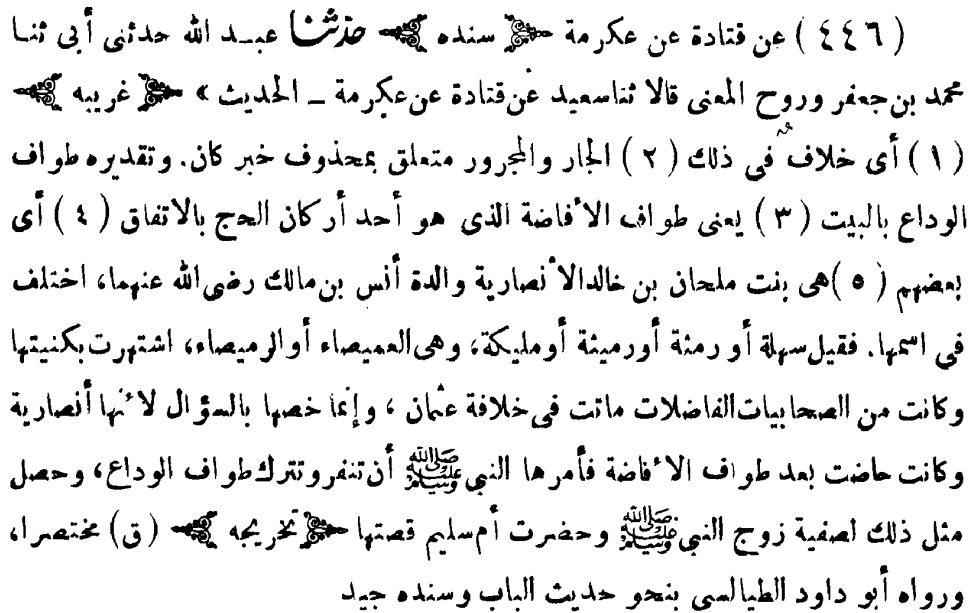 ( ٤٤٦ ) عن قتادة عن عكرمة ﴿ سنده ﴾ حدثنا عبد الله حدثنى أبى ثنا
محمد بن جعفر وروح المعنى قالا ثنا سعيد عن قتادة عن عكرمة ــ الحديث » ﴿ غريبه ﴾
( ١ ) أى خلاف فى ذلك ( ٢ ) الجار والمجرور متعلق بمحذوف خبر كان. وتقديره طواف
الوداع بالبيت ( ٣ ) يعنى طواف الأفاضة الذى هو أحد أركان الحج بالاتفاق ( ٤ ) أى
بعضهم ( ٥ ) هى بنت ملحان بن خالد الأنصارية والدة أنس بن مالك رضى الله عنهما، اختلف
فى اسمها. فقيل سهلة أو رمثة أو رميثة أو مليكة، وهى العميصاء أو الرميصاء، اشتهرت بكنيتها
وكانت من الصحابيات الفاضلات ماتت فى خلافة عثمان ، وإنما خصها بالسؤال لأنها أنصارية
وكانت حاضت بعد طواف الأفاضة فأمرها النبى ﷺ أن تنفر وتترك طواف الوداع، وحصل
مثل ذلك لصفية زوج النبى ﷺ وحضرت أم سليم قصتها ﴿ تخريجه ﴾ (ق) مختصرا،
ورواه أبو داود الطيالسى بنحو حديث الباب وسنده جيد